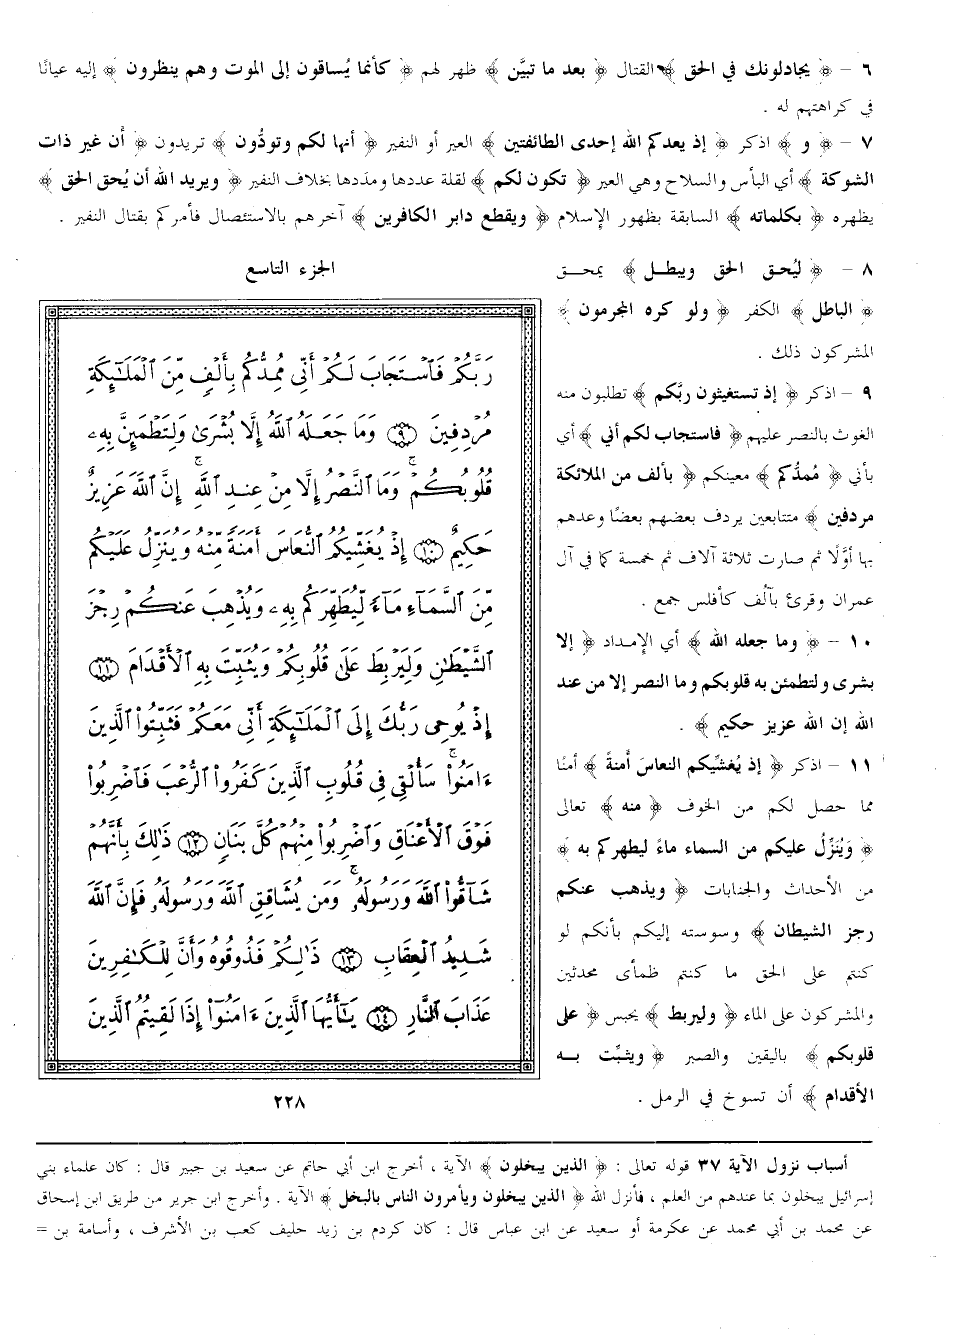 ٦ - ﴿ يجادلونك في الحق ﴾ القتال ﴿ بعد ما تبيَّن ﴾ ظهر لهم ﴿ كأنما يُساقون إلى الموت وهم ينظرون ﴾ إليه عيانًا
في كراهتهم له .
٧ - ﴿ و ﴾ اذكر ﴿ إذ يعدكم الله إحدى الطائفتين ﴾ العير أو النفير ﴿ أنها لكم وتودُّون ﴾ تريدون ﴿ أن غير ذات
الشوكة ﴾ أي البأس والسلاح وهي العير ﴿ تكون لكم ﴾ لقلة عددها ومددها بخلاف النفير ﴿ ويريد الله أن يُحق الحق ﴾
يظهره ﴿ بكلماته ﴾ السابقة بظهور الإسلام ﴿ ويقطع دابر الكافرين ﴾ آخرهم بالاستئصال فأمركم بقتال النفير .
٨ - ﴿ ليُحق الحق ويبطل ﴾ يمحق
﴿ الباطل ﴾ الكفر ﴿ ولو كره المجرمون ﴾
المشركون ذلك .
٩ - اذكر ﴿ إذ تستغيثون ربَّكم ﴾ تطلبون منه
الغوث بالنصر عليهم ﴿ فاستجاب لكم أني ﴾ أي
بأني ﴿ مُمدُّكم ﴾ معينكم ﴿ بألف من الملائكة
مردفين ﴾ متتابعين يردف بعضهم بعضًا وعدهم
بها أوَّلًا ثم صارت ثلاثة آلاف ثم خمسة كما في آل
عمران وقرئ بآلُف كأفلس جمع .
١٠ - ﴿ وما جعله الله ﴾ أي الإمداد ﴿ إلا
بشرى ولتطمئن به قلوبكم وما النصر إلا من عند
الله إن الله عزيز حكيم ﴾ .
١١ - اذكر ﴿ إذ يُغشِّيكم النعاسَ أمنةً ﴾ أمنًا
مما حصل لكم من الخوف ﴿ منه ﴾ تعالى
﴿ وَيُنَزِّلُ عليكم من السماء ماءً ليطهركم به ﴾
من الأحداث والجنابات ﴿ ويذهب عنكم
رجز الشيطان ﴾ وسوسته إليكم بأنكم لو
كنتم على الحق ما كنتم ظمأى محدثين
والمشركون على الماء ﴿ وليربط ﴾ يحبس ﴿ على
قلوبكم ﴾ باليقين والصبر ﴿ ويثبِّت به
الأقدام ﴾ أن تسوخ في الرمل .
الجزء التاسع
رَبَّكُمْ فَٱسْتَجَابَ لَكُمْ أَنِّي مُمِدُّكُم بِأَلْفٍ مِّنَ ٱلْمَلَٰٓئِكَةِ
مُرْدِفِينَ ۝٩ وَمَا جَعَلَهُ ٱللَّهُ إِلَّا بُشْرَىٰ وَلِتَطْمَئِنَّ بِهِۦ
قُلُوبُكُمْ ۚ وَمَا ٱلنَّصْرُ إِلَّا مِنْ عِندِ ٱللَّهِ ۚ إِنَّ ٱللَّهَ عَزِيزٌ
حَكِيمٌ ۝١٠ إِذْ يُغَشِّيكُمُ ٱلنُّعَاسَ أَمَنَةً مِّنْهُ وَيُنَزِّلُ عَلَيْكُم
مِّنَ ٱلسَّمَآءِ مَآءً لِّيُطَهِّرَكُم بِهِۦ وَيُذْهِبَ عَنكُمْ رِجْزَ
ٱلشَّيْطَٰنِ وَلِيَرْبِطَ عَلَىٰ قُلُوبِكُمْ وَيُثَبِّتَ بِهِ ٱلْأَقْدَامَ ۝١١
إِذْ يُوحِي رَبُّكَ إِلَى ٱلْمَلَٰٓئِكَةِ أَنِّي مَعَكُمْ فَثَبِّتُوا۟ ٱلَّذِينَ
ءَامَنُوا۟ ۚ سَأُلْقِي فِي قُلُوبِ ٱلَّذِينَ كَفَرُوا۟ ٱلرُّعْبَ فَٱضْرِبُوا۟
فَوْقَ ٱلْأَعْنَاقِ وَٱضْرِبُوا۟ مِنْهُمْ كُلَّ بَنَانٍ ۝١٢ ذَٰلِكَ بِأَنَّهُمْ
شَآقُّوا۟ ٱللَّهَ وَرَسُولَهُۥ ۚ وَمَن يُشَاقِقِ ٱللَّهَ وَرَسُولَهُۥ فَإِنَّ ٱللَّهَ
شَدِيدُ ٱلْعِقَابِ ۝١٣ ذَٰلِكُمْ فَذُوقُوهُ وَأَنَّ لِلْكَٰفِرِينَ
عَذَابَ ٱلنَّارِ ۝١٤ يَٰٓأَيُّهَا ٱلَّذِينَ ءَامَنُوٓا۟ إِذَا لَقِيتُمُ ٱلَّذِينَ
٢٢٨
أسباب نزول الآية ٣٧ قوله تعالى : ﴿ الذين يبخلون ﴾ الآية ، أخرج ابن أبي حاتم عن سعيد بن جبير قال : كان علماء بني
إسرائيل يبخلون بما عندهم من العلم ، فأنزل الله ﴿ الذين يبخلون ويأمرون الناس بالبخل ﴾ الآية . وأخرج ابن جرير من طريق ابن إسحاق
عن محمد بن أبي محمد عن عكرمة أو سعيد عن ابن عباس قال : كان كردم بن زيد حليف كعب بن الأشرف ، وأسامة بن =